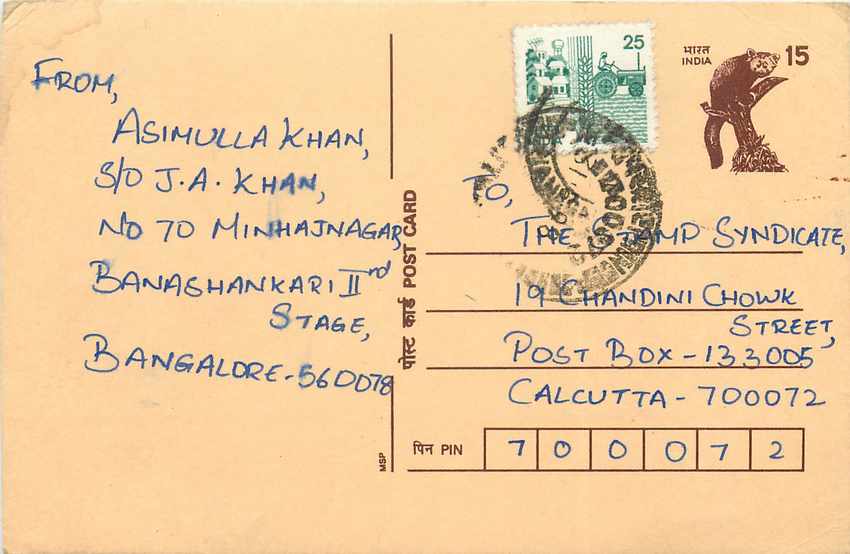 FROM,
ASIMULLA KHAN,
S/O J.A. KHAN,
NO 70 MINHAJNAGAR,
BANASHANKARI IIrd
STAGE,
BANGALORE-560078
पोस्ट कार्ड POST CARD
MSP
25
भारत
INDIA
15
TO,
THE STAMP SYNDICATE,
19 CHANDINI CHOWK
STREET,
POST BOX-133005
CALCUTTA-700072
पिन PIN
7 0 0 0 7 2